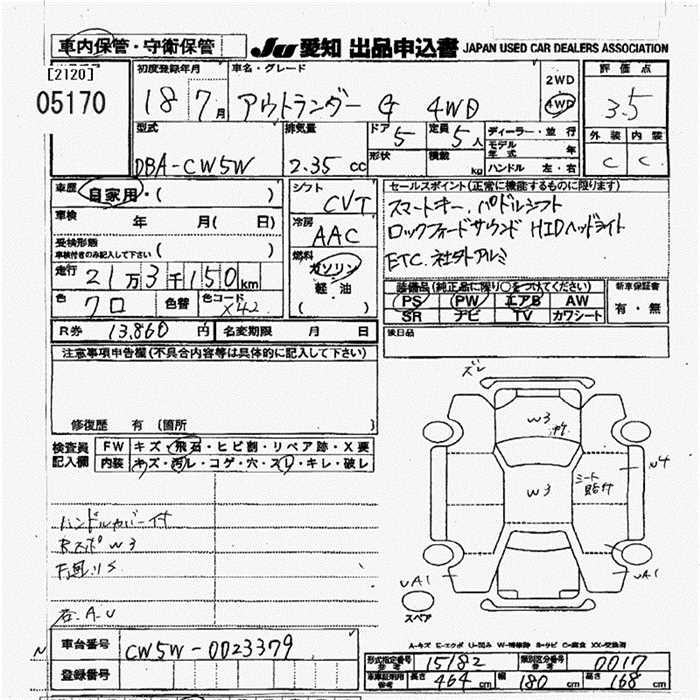 車内保管・守衛保管
JU 愛知 出品申込書 JAPAN USED CAR DEALERS ASSOCIATION
[2120]
05170
初度登録年月
18 7月
車名・グレード
アウトランダー G 4WD
2WD
4WD
評価点
3.5
型式
DBA-CW5W
排気量
2.35 cc
ドア
5
定員
5人
形状
積載
kg
ディーラー・並行
モデル年式 年
ハンドル 左・右
外装 内装
C C
車歴
自家用・( )
車検 年 月( 日)
受検形態
車検付きのみ記入して下さい ( )
走行
21万3千150km
色
クロ
色替
色コード
X42
R券 13,860円
名変期限 月 日
シフト
CVT
冷房
AAC
燃料
ガソリン
軽・油
( )
セールスポイント(正常に機能するものに限ります)
スマートキー、パドルシフト
ロックフォードサウンド HIDヘッドライト
ETC. 社外アルミ
装備品(純正品に限り○をつけてください)
PS PW エアB AW
SR ナビ TV カワシート
新車保証書
有・無
後日品
注意事項申告欄(不具合内容等は具体的に記入して下さい)
修復歴 有(箇所 )
検査員記入欄
FW キズ・飛石・ヒビ割・リペア跡・X要
内装 キズ・汚レ・コゲ・穴・スレ・キレ・破レ
ハンドルカバー付
RスポW3
右.A.U
ズレ
W3
W3
シート
UA1
UA1
スペア
車台番号
CW5W-0023379
登録番号
A-キズ E-エクボ U-凹み W-補修跡 S-サビ C-腐食 XX-交換済
形式指定番号
参考
15182
類別区分番号
参考
0017
車庫証明用
参考
長さ 464cm
幅 180cm
高さ 168cm